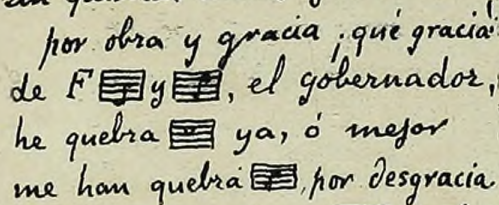 por obra y gracia ¡qué gracia!
de F y , el gobernador,
he quebra ya, ó mejor
me han quebra , por desgracia